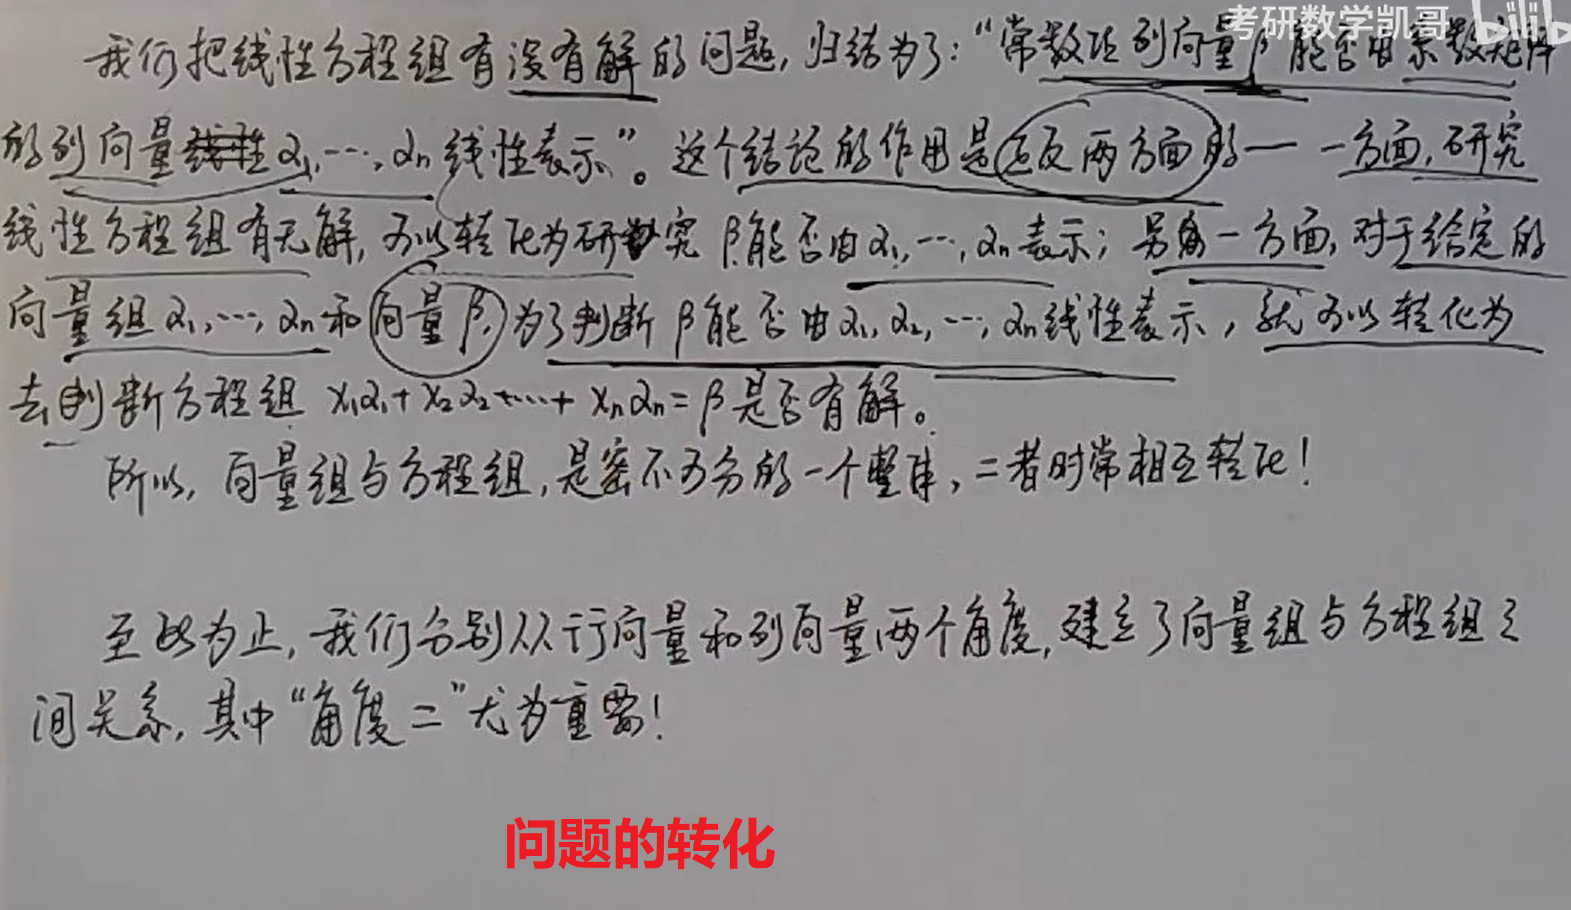 考研数学凯哥 bilib
我们把线性方程组有没有解的问题，归结为了：“常数项列向量β能否由系数矩阵
的列向量α₁，…，αn线性表示”。这个结论的作用是正反两方面的——一方面，研究
线性方程组有无解，可以转化为研究β能否由α₁，…，αn表示；另一方面，对于给定的
向量组α₁，…，αn和向量β，为了判断β能否由α₁，α₂，…，αn线性表示，就可以转化为
去判断方程组 x₁α₁+x₂α₂+…+xnαn=β是否有解。
所以，向量组与方程组，是密不可分的一个整体，二者时常相互转化！
至此为止，我们分别从行向量和列向量两个角度，建立了向量组与方程组之
间关系，其中“角度二”尤为重要！
问题的转化